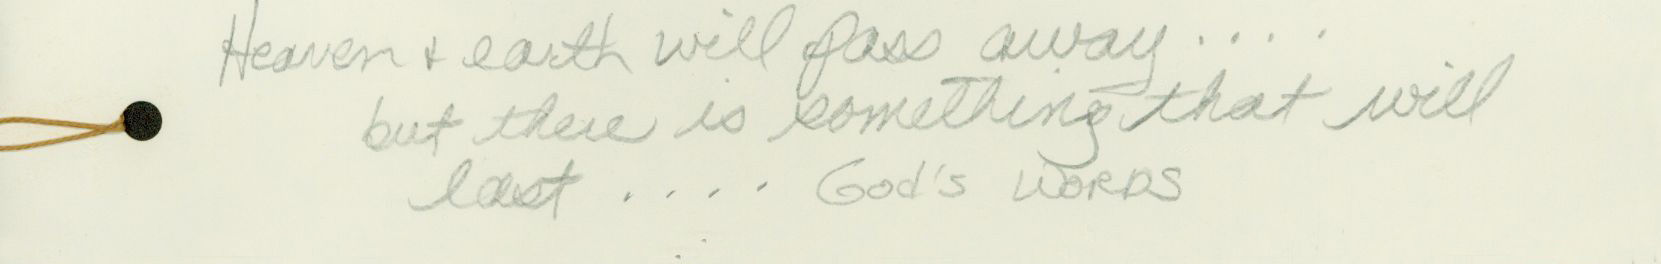 Heaven & earth will pass away....
but there is something that will
last .... God's WORDS